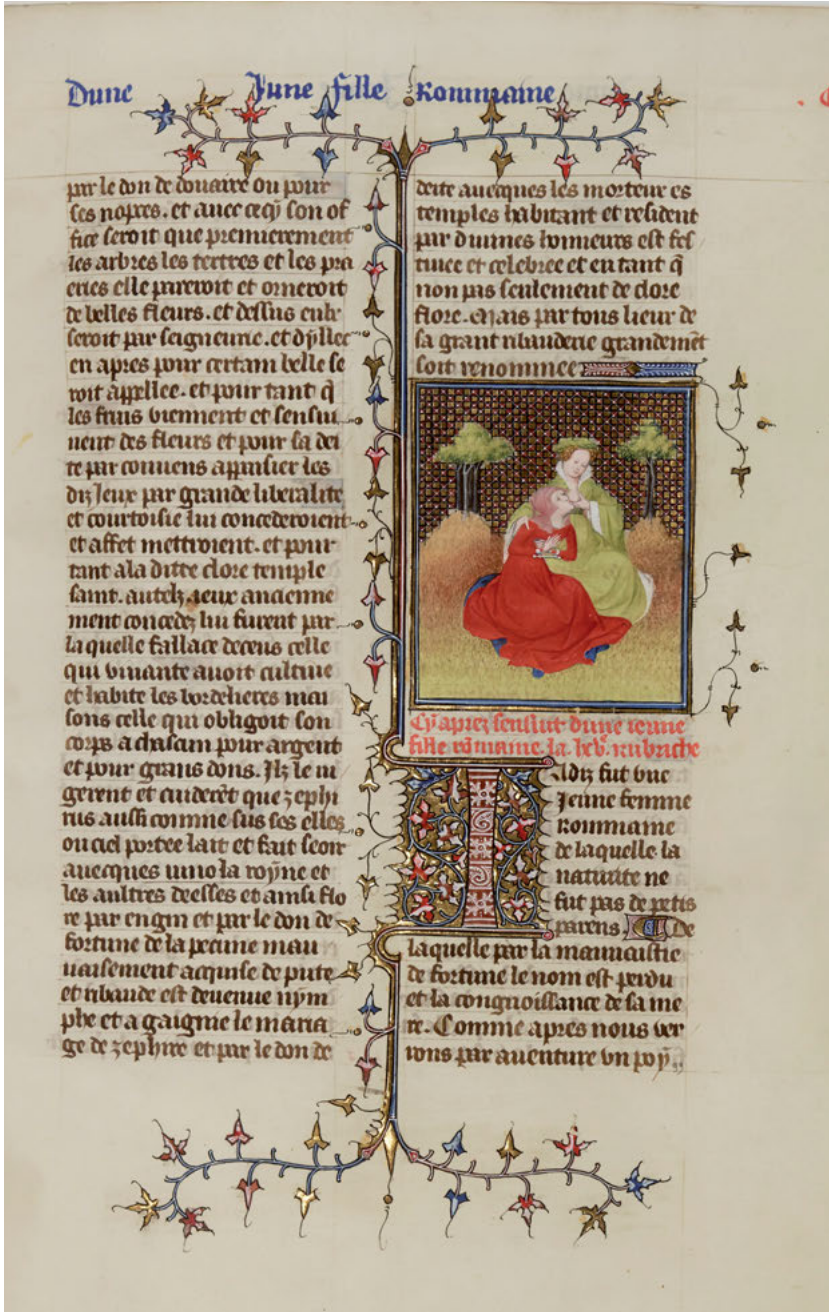 Dune June fille Rommaine
par le don de douaire ou pour
ses nopces. et auec cecy son of
fice seroit que premierement
les arbres les tertres et les pra
eries elle pareroit et orneroit
de belles fleurs. et dessus
seroit par seigneurie. et dyllec
en apres pour certain belle se
roit appellee. et pour tant q̃
les fruis viennent et sensui
uent des fleurs et pour sa dei
te par conuens appaisier les
diz Jeux par grande liberalite
et courtoisie lui concederoient
et affet mettroient. et pour
tant ala ditte clore temple
saint. autelz Jeux ancienne
ment concedez lui furent par
la quelle fallace deceus celle
qui viuante auoit cultiue
et habite les bordelieres mai
sons celle qui obligoit son
corps a chascun pour argent
et pour grans dons. Ilz le iu
gerent et cuiderẽt que zephi
rus aussi comme sus ses elles
ou ciel portee lait et fait seoir
auecques iuno la royne et
les aultres deesses et ainsi flo
re par engin et par le don de
fortune de la pecune mau
uaisement acquise de pute
et ribaude est deuenue nym
phe et a gaignie le maria
ge de zephire et par le don de
deite auecques les morteux es
temples habitant et resident
par diuines honneurs est fes
tiuee et celebree et en tant q̃
non pas seulement de clore
flore. Mais par tous lieux de
sa grant ribauderie grandemẽt
soit renommee
Cy aprez sensiut dune ieune
fille rõmaine. la rubriche
Iadiz fut vne
Jeune femme
Rommaine
de laquelle la
natiuite ne
fut pas de petis
parens. De
laquelle par la mauuaistie
de fortune le nom est perdu
et la congnoissance de sa me
re. Comme apres nous ver
rons par auenture vn poy